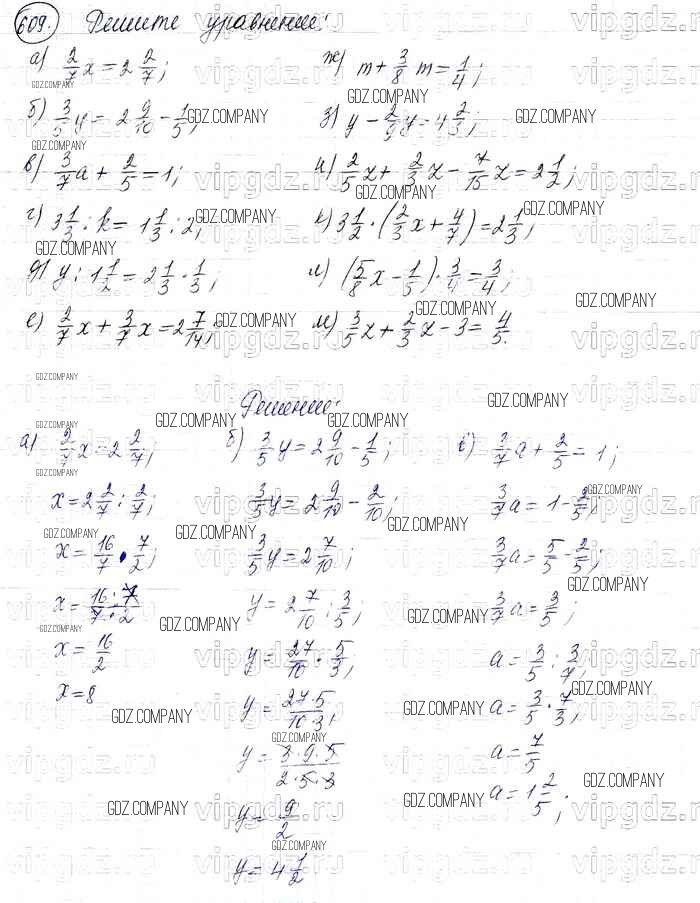 609. Решите уравнения:
а) 2/7 x = 2 2/7;
ж) m + 3/8 m = 1/4;
б) 3/5 y = 2 9/10 - 1/5;
з) y - 2/9 y = 4 2/3;
в) 3/7 a + 2/5 = 1;
и) 2/5 z + 2/3 z - 7/15 z = 2 1/2;
г) 3 1/3 : k = 1 1/3 : 2;
к) 3 1/2 · (2/3 x + 4/7) = 2 1/3;
д) y : 1 1/2 = 2 1/3 · 1/3;
л) (5/8 x - 1/5) · 3/4 = 3/4;
е) 2/7 x + 3/7 x = 2 7/14;
м) 3/5 z + 2/3 z - 3 = 4/5.
Решение:
а) 2/7 x = 2 2/7;
x = 2 2/7 : 2/7;
x = 16/7 · 7/2;
x = 16·7/7·2
x = 16/2
x = 8
б) 3/5 y = 2 9/10 - 1/5;
3/5 y = 2 9/10 - 2/10;
3/5 y = 2 7/10;
y = 2 7/10 : 3/5;
y = 27/10 · 5/3;
y = 27·5/10·3;
y = 3·9·5/2·5·3
y = 9/2
y = 4 1/2
3/7 a + 2/5 = 1;
3/7 a = 1 - 2/5;
3/7 a = 5/5 - 2/5;
3/7 a = 3/5;
a = 3/5 : 3/7;
a = 3/5 · 7/3;
a = 7/5
a = 1 2/5;
GDZ.COMPANY
vipgdz.ru